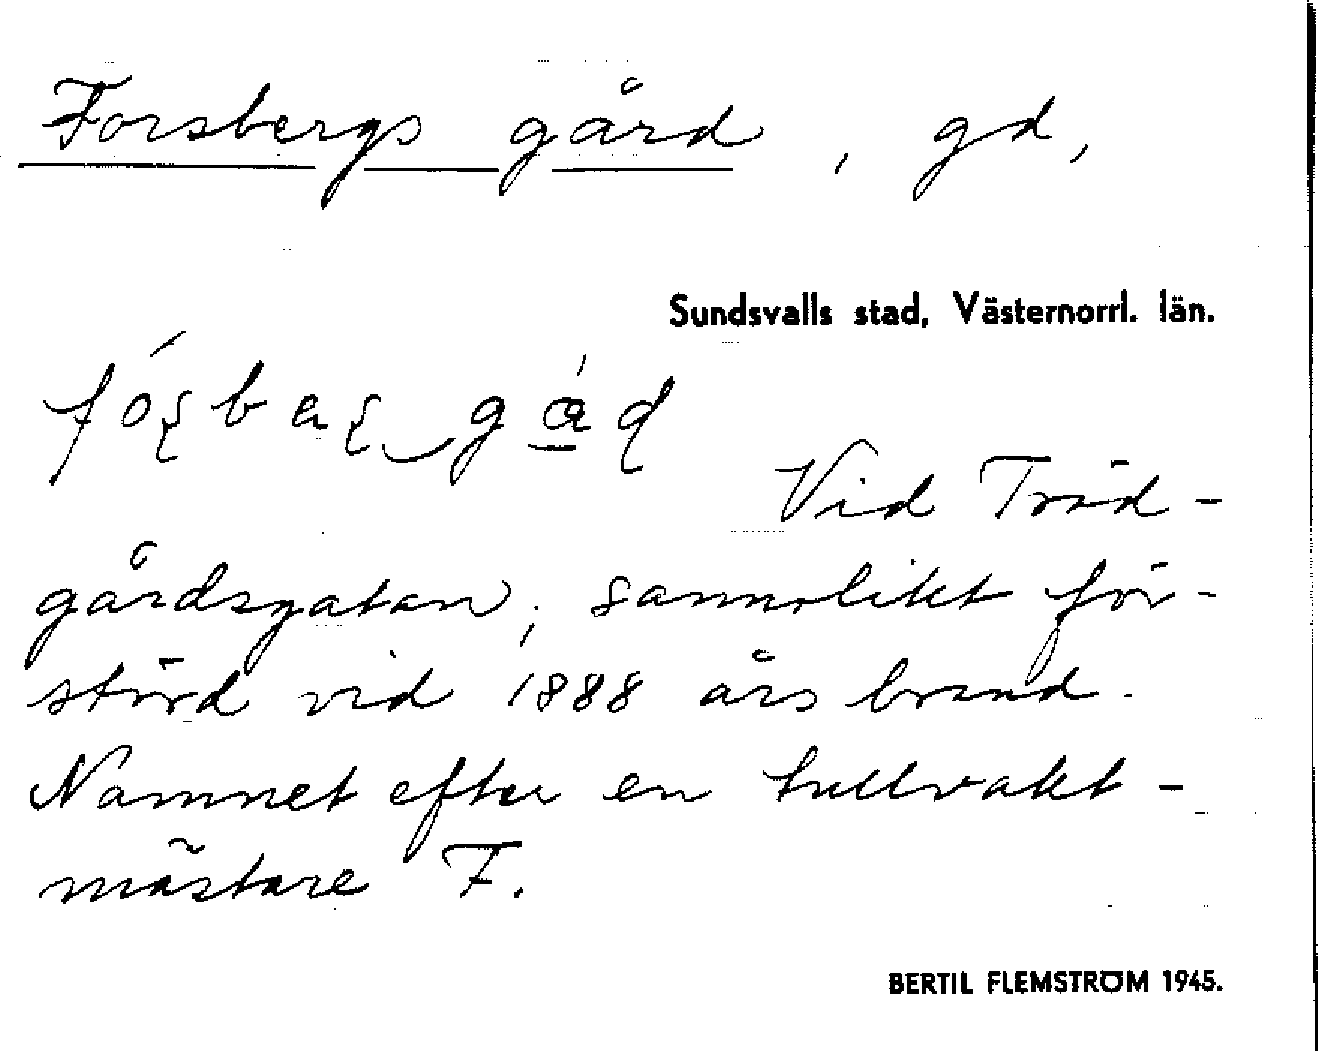 Forsbergs gård, gd,
Sundsvalls stad, Västernorrl. län.
Vid Träd-
gårdsgatan; sannolikt för-
störd vid 1888 års brand.
Namnet efter en tullvakt-
mästare F.
BERTIL FLEMSTRÖM 1945.